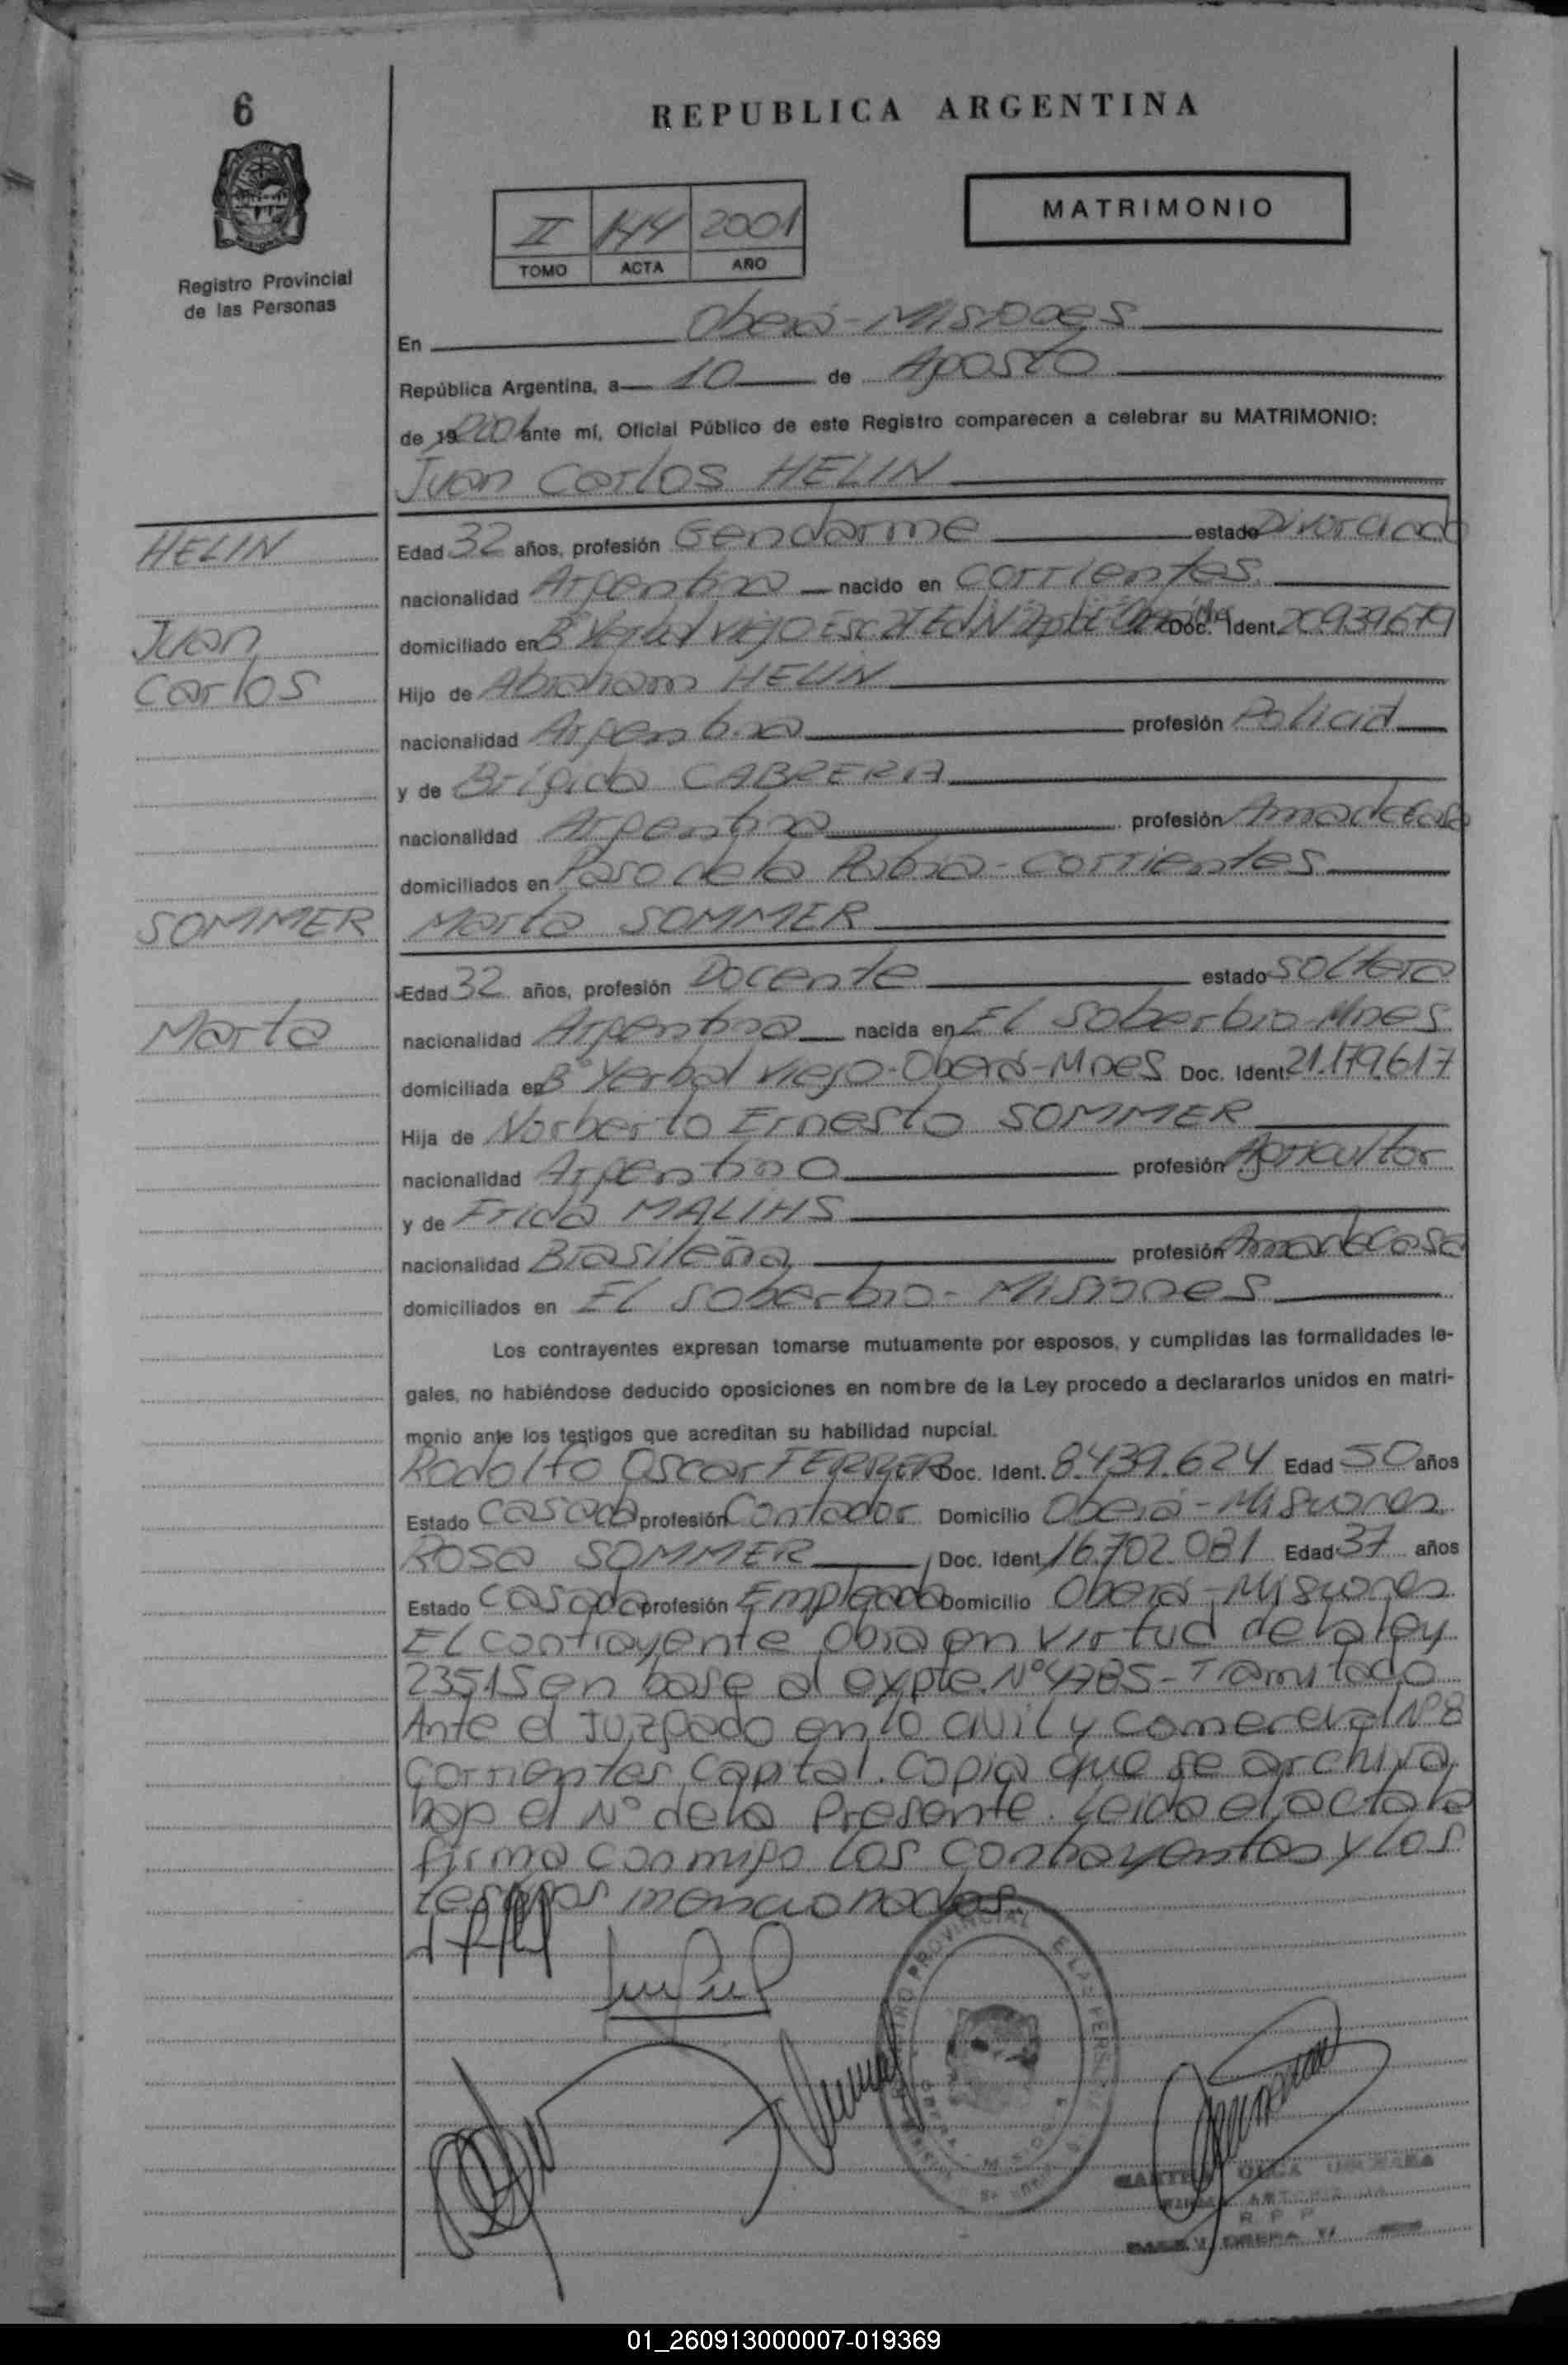 6
REPUBLICA ARGENTINA
MATRIMONIO
II 144 2001
TOMO ACTA AÑO
Registro Provincial
de las Personas
En Oberá - Misiones
República Argentina, a 10 de Agosto
de 19 2001 ante mí, Oficial Público de este Registro comparecen a celebrar su MATRIMONIO:
Juan Carlos HELIN
HELIN
Edad 32 años, profesión Gendarme estado Divorciado
nacionalidad Argentina nacido en Corrientes
Juan
domiciliado en Bº Yerbal viejo Esc 21 Edif Doc. Ident. 20939679
Carlos
Hijo de Abraham HELIN
nacionalidad Argentina profesión Policia
y de Brígida CABRERA
nacionalidad Argentina profesión Ama de Casa
domiciliados en Paso de la Patria - Corrientes
SOMMER
Marta SOMMER
Edad 32 años, profesión Docente estado Soltera
Marta
nacionalidad Argentina nacida en El Soberbio - Mnes
domiciliada en Bº Yerbal Viejo - Oberá - Mnes Doc. Ident. 21.179.617
Hija de Norberto Ernesto SOMMER
nacionalidad Argentino profesión Agricultor
y de Frida MALIHS
nacionalidad Brasileña profesión Ama de Casa
domiciliados en El Soberbio - Misiones
Los contrayentes expresan tomarse mutuamente por esposos, y cumplidas las formalidades le-
gales, no habiéndose deducido oposiciones en nombre de la Ley procedo a declararlos unidos en matri-
monio ante los testigos que acreditan su habilidad nupcial.
Rodolfo Oscar FERRER Doc. Ident. 8.439.624 Edad 50 años
Estado Casado profesión Contador Domicilio Oberá - Misiones
Rosa SOMMER Doc. Ident. 16.702.081 Edad 37 años
Estado Casada profesión Empleada Domicilio Oberá - Misiones
El contrayente obra en virtud de la ley
23515 en base al expte. Nº 4785 - Tramitado
Ante el Juzgado en lo civil y comercial Nº 8
Corrientes Capital. Copia que se archiva
bajo el Nº de la Presente. Leida el acta la
firma conmigo los contrayentes y los
testigos mencionados.
R P P
01_260913000007-019369